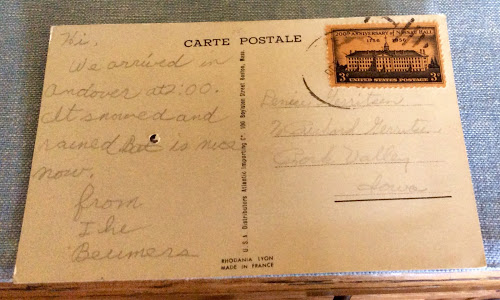 CARTE POSTALE
200TH ANNIVERSARY of NASSAU HALL
1756 1956
3¢ UNITED STATES POSTAGE 3¢
Hi,
We arrived in
Andover at 2:00.
It snowed and
rained but is nice
now.
From
The
Beumers
U.S.A. Distributors Atlantic Importing Co. Boylston Street Boston, Mass.
Gerritsen
Rock Valley
Iowa
RHODANIA LYON
MADE IN FRANCE